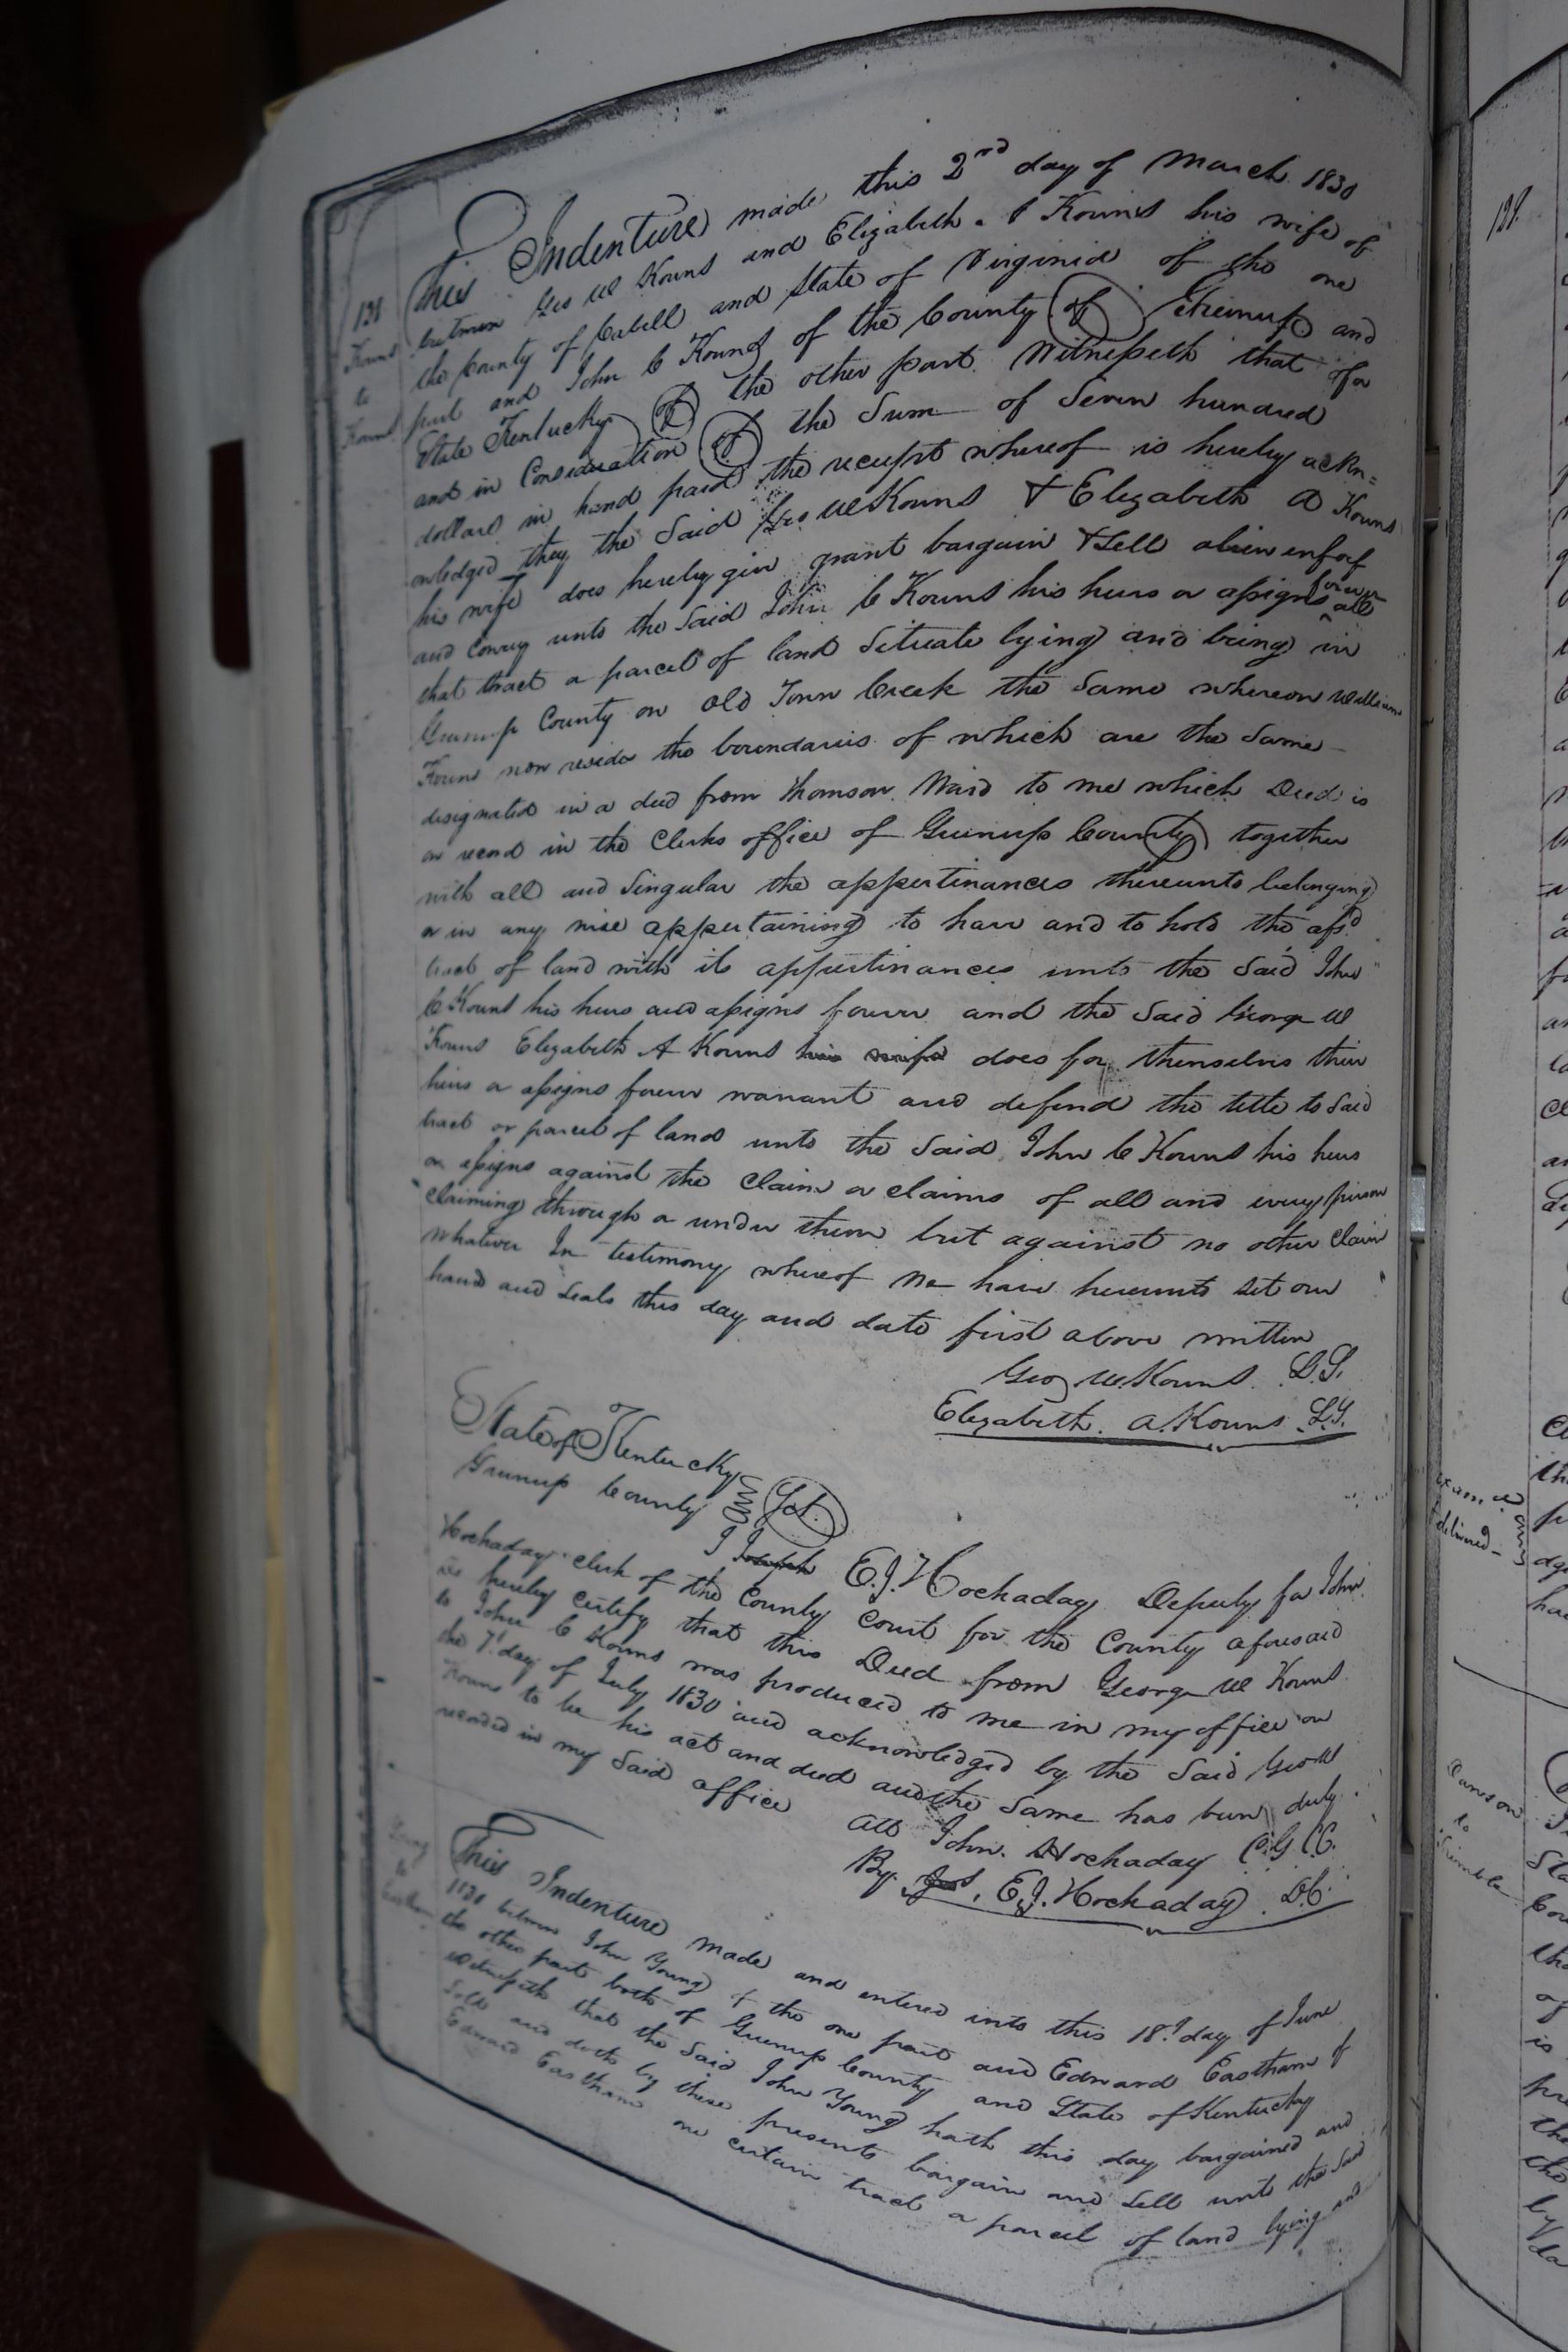 138
Kouns
to
Kouns
This Indenture made this 2nd day of March 1830
between Geo W Kouns and Elizabeth A Kouns his wife of
the County of Cabell and State of Virginia of the one
part and John C Kouns of the County of Greenup and
State Kentucky of the other part Witnesseth that for
and in Consideration of the Sum of Seven hundred
dollars in hand paid the receipt whereof is hereby ackn=
owledged they the Said Geo W Kouns & Elizabeth A Kouns
his wife does hereby give grant bargain & Sell alien enfeof
and Convey unto the Said John C Kouns his heirs or assigns forever all
that tract or parcel of land Situate lying and being in
Greenup County on Old Town Creek the Same whereon William
Kouns now resides the boundaries of which are the Same
designated in a deed from Thomson Ward to me which Deed is
on record in the Clerks office of Greenup County together
with all and Singular the appertinances thereunto belonging
or in any wise appertaining to have and to hold the afsd
tract of land with its appertinances unto the Said John
C Kouns his heirs and assigns forever and the Said George W
Kouns Elizabeth A Kouns his wife does for themselves their
heirs or assigns forever warrant and defend the title to Said
tract or parcel of land unto the Said John C Kouns his heirs
or assigns against the Claim or claims of all and every person
Claiming through or under them but against no other Claim
whatever In testimony whereof We have hereunto Set our
hand and Seals this day and date first above written
Geo W. Kouns L.S.
Elizabeth. A. Kouns L.S.
State of Kentucky
Greenup County Sct.
I Joseph E. J. Hockaday Deputy for John
Hockaday clerk of the County Court for the County aforesaid
do hereby certify that this Deed from George W Kouns
to John C Kouns was produced to me in my office on
the 7t day of July 1830 and acknowledged by the Said Geo W
Kouns to be his act and deed and the Same has been duly
recorded in my Said office
Att John Hockaday C.G.C.C.
By Jos. E. J. Hockaday D.C.
Young
to
Eastham
This Indenture made and entered into this 18t day of June
1830 between John Young of the one part and Edward Eastham of
the other part both of Greenup County and State of Kentucky
Witnesseth that the Said John Young hath this day bargained and
Sold and doth by these presents bargain and Sell unto the Said
Edward Eastham one certain tract or parcel of land lying and
138
exam.d and
delivered
to